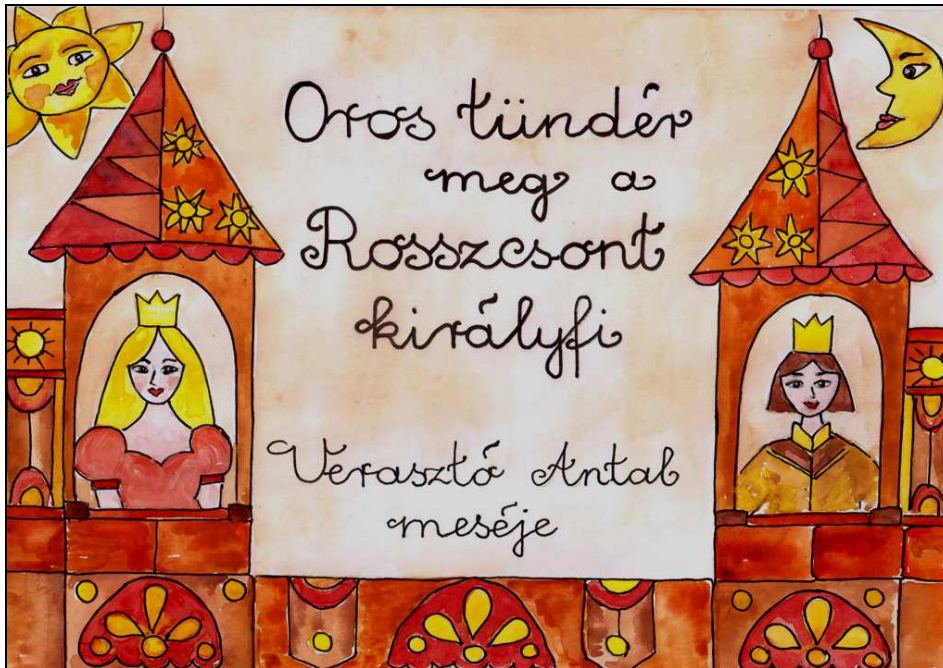 Oros tündér
meg a
Rosszcsont
királyfi
Verasztó Antal
meséje